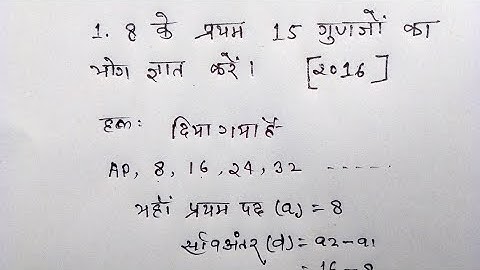 1. 8 के प्रथम 15 गुणजों का
योग ज्ञात करें। [2016]
हल: दिया गया है-
AP, 8, 16, 24, 32 -----
यहाँ प्रथम पद (a) = 8
सार्वअंतर (d) = a2-a1
= 16 - 8